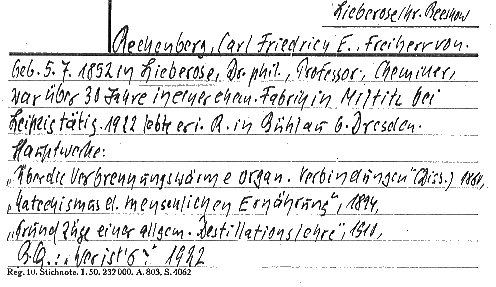 Lieberose/Kr. Beeskow
Rechenberg, Carl Friedrich E., Freiherr von.
Geb. 5.7.1852 in Lieberose, Dr. phil., Professor, Chemiker,
war über 30 Jahre in einer chem. Fabrik in Miltitz bei
Leipzig tätig. 1922 lebte er i. R. in Bühlau b. Dresden.
Hauptwerke:
„Über die Verbrennungswärme organ. Verbindungen" (Diss.) 1880,
„Katechismus d. menschlichen Ernährung", 1894,
„Grundzüge einer allgem. Destillationslehre", 1910,
B.Q.: „Wer ist's?" 1922
Reg. 10. Stichnote. 1. 50. 232000. A. 803. S. 4062